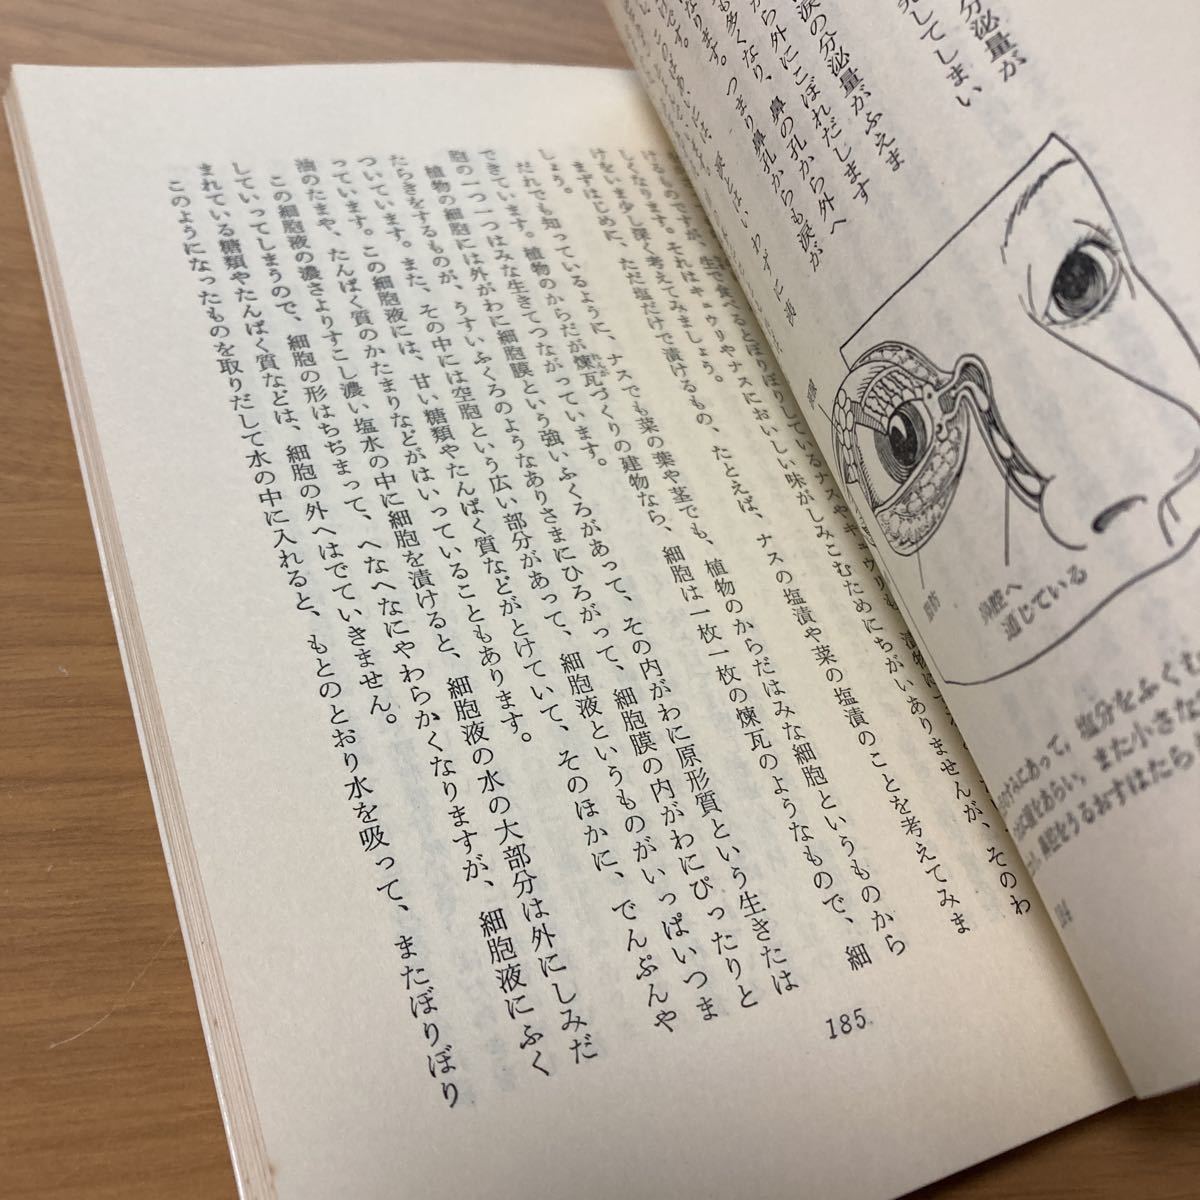 分泌量が
してしまい
涙の分泌量がふえま
から外にこぼれだします
も多くなり、鼻の孔から外へ
なります。つまり鼻孔からも涙が
脂肪
鼻腔へ
通じている
のすみにあって、塩分をふくす
また小さな
鼻腔をうるおすはたら
184
けるものですが、生で食べるとぼりぼりしているナスやキュウリも、漬物に
しくなります。それはキュウリやナスにおいしい味がしみこむためにちがいありませんが、そのわ
けをいま少し深く考えてみましょう。
まずはじめに、ただ塩だけで漬けるもの、たとえば、ナスの塩漬や菜の塩漬のことを考えてみま
しょう。
だれでも知っているように、ナスでも菜の葉や茎でも、植物のからだはみな細胞というものから
できています。植物のからだが煉瓦づくりの建物なら、細胞は一枚一枚の煉瓦のようなもので、細
胞の一つ一つはみな生きてつながっています。
植物の細胞には外がわに細胞膜という強いふくろがあって、その内がわに原形質という生きたは
たらきをするものが、うすいふくろのようなありさまにひろがって、細胞膜の内がわにぴったりと
ついています。また、その中には空胞という広い部分があって、細胞液というものがいっぱいつま
っています。この細胞液には、甘い糖類やたんぱく質などがとけていて、そのほかに、でんぷんや
油のたまや、たんぱく質のかたまりなどがはいっていることもあります。
この細胞液の濃さよりすこし濃い塩水の中に細胞を漬けると、細胞液の水の大部分は外にしみだ
していってしまうので、細胞の形はちぢまって、へなへなにやわらかくなりますが、細胞液にふく
まれている糖類やたんぱく質などは、細胞の外へはでていきません。
このようになったものを取りだして水の中に入れると、もとのとおり水を吸って、またぼりぼり
185